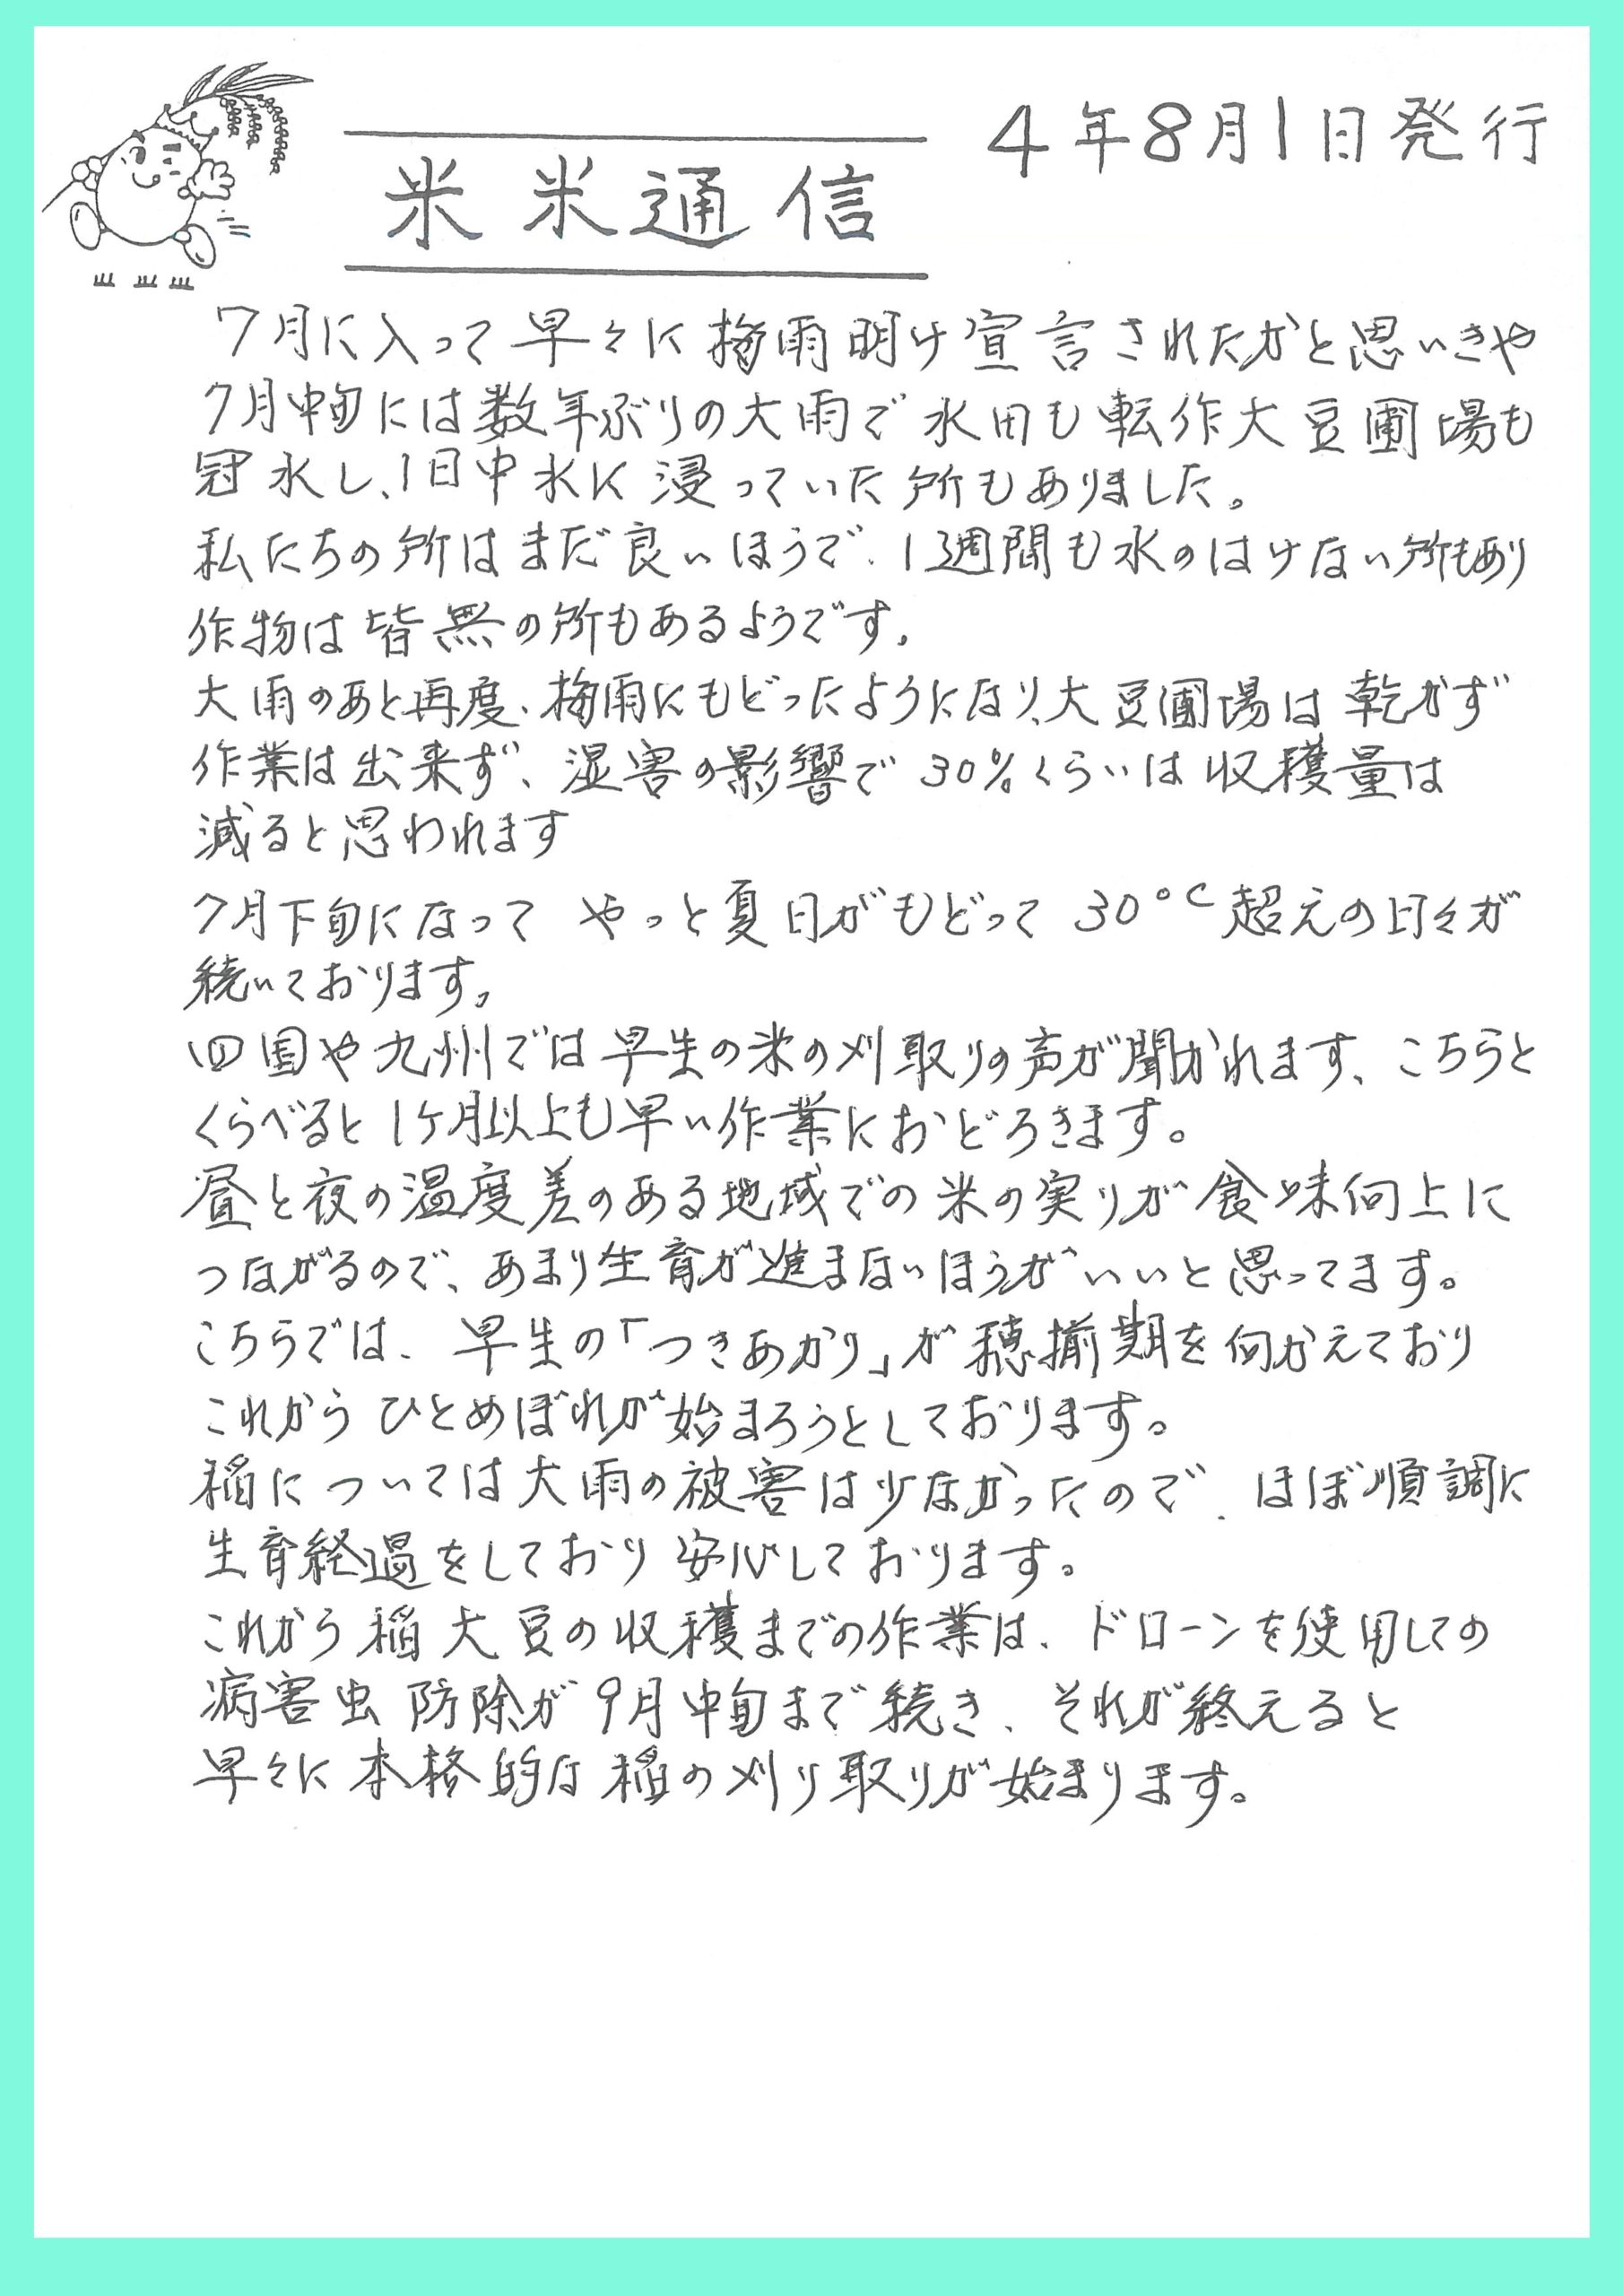 4年8月1日発行
米米通信
7月に入って早々に梅雨明け宣言されたかと思いきや
7月中旬には数年ぶりの大雨で水田も転作大豆圃場も
冠水し、1日中水に浸っていた所もありました。
私たちの所はまだ良いほうで、1週間も水のはけない所もあり
作物は皆無の所もあるようです。
大雨のあと再度、梅雨にもどったようになり、大豆圃場は乾かず
作業は出来ず、湿害の影響で30%くらいは収穫量は
減ると思われます
7月下旬になって やっと夏日がもどって 30℃超えの日々が
続いております。
四国や九州では早生の米の刈取りの声が聞かれます、こちらと
くらべると1ヶ月以上も早い作業におどろきます。
昼と夜の温度差のある地域での米の実りが食味向上に
つながるので、あまり生育が進まないほうがいいと思ってます。
こちらでは、早生の「つきあかり」が穂揃期を向かえており
これからひとめぼれが始まろうとしております。
稲については大雨の被害は少なかったので、ほぼ順調に
生育経過をしており安心しております。
これから稲大豆の収穫までの作業は、ドローンを使用しての
病害虫防除が9月中旬まで続き、それが終えると
早々に本格的な稲の刈り取りが始まります。